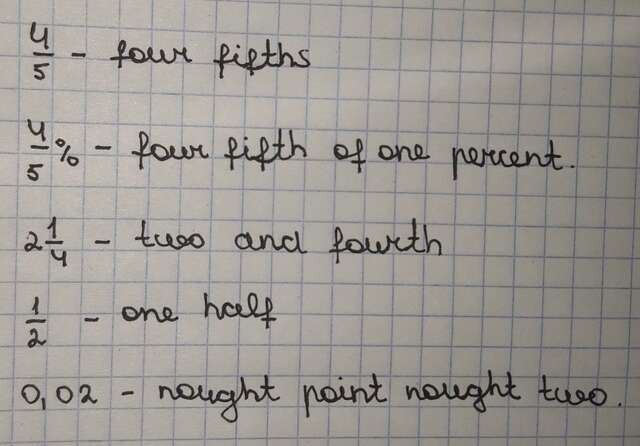 4/5 - four fifths
4/5 % - four fifth of one percent.
2 1/4 - two and fourth
1/2 - one half
0,02 - nought point nought two.